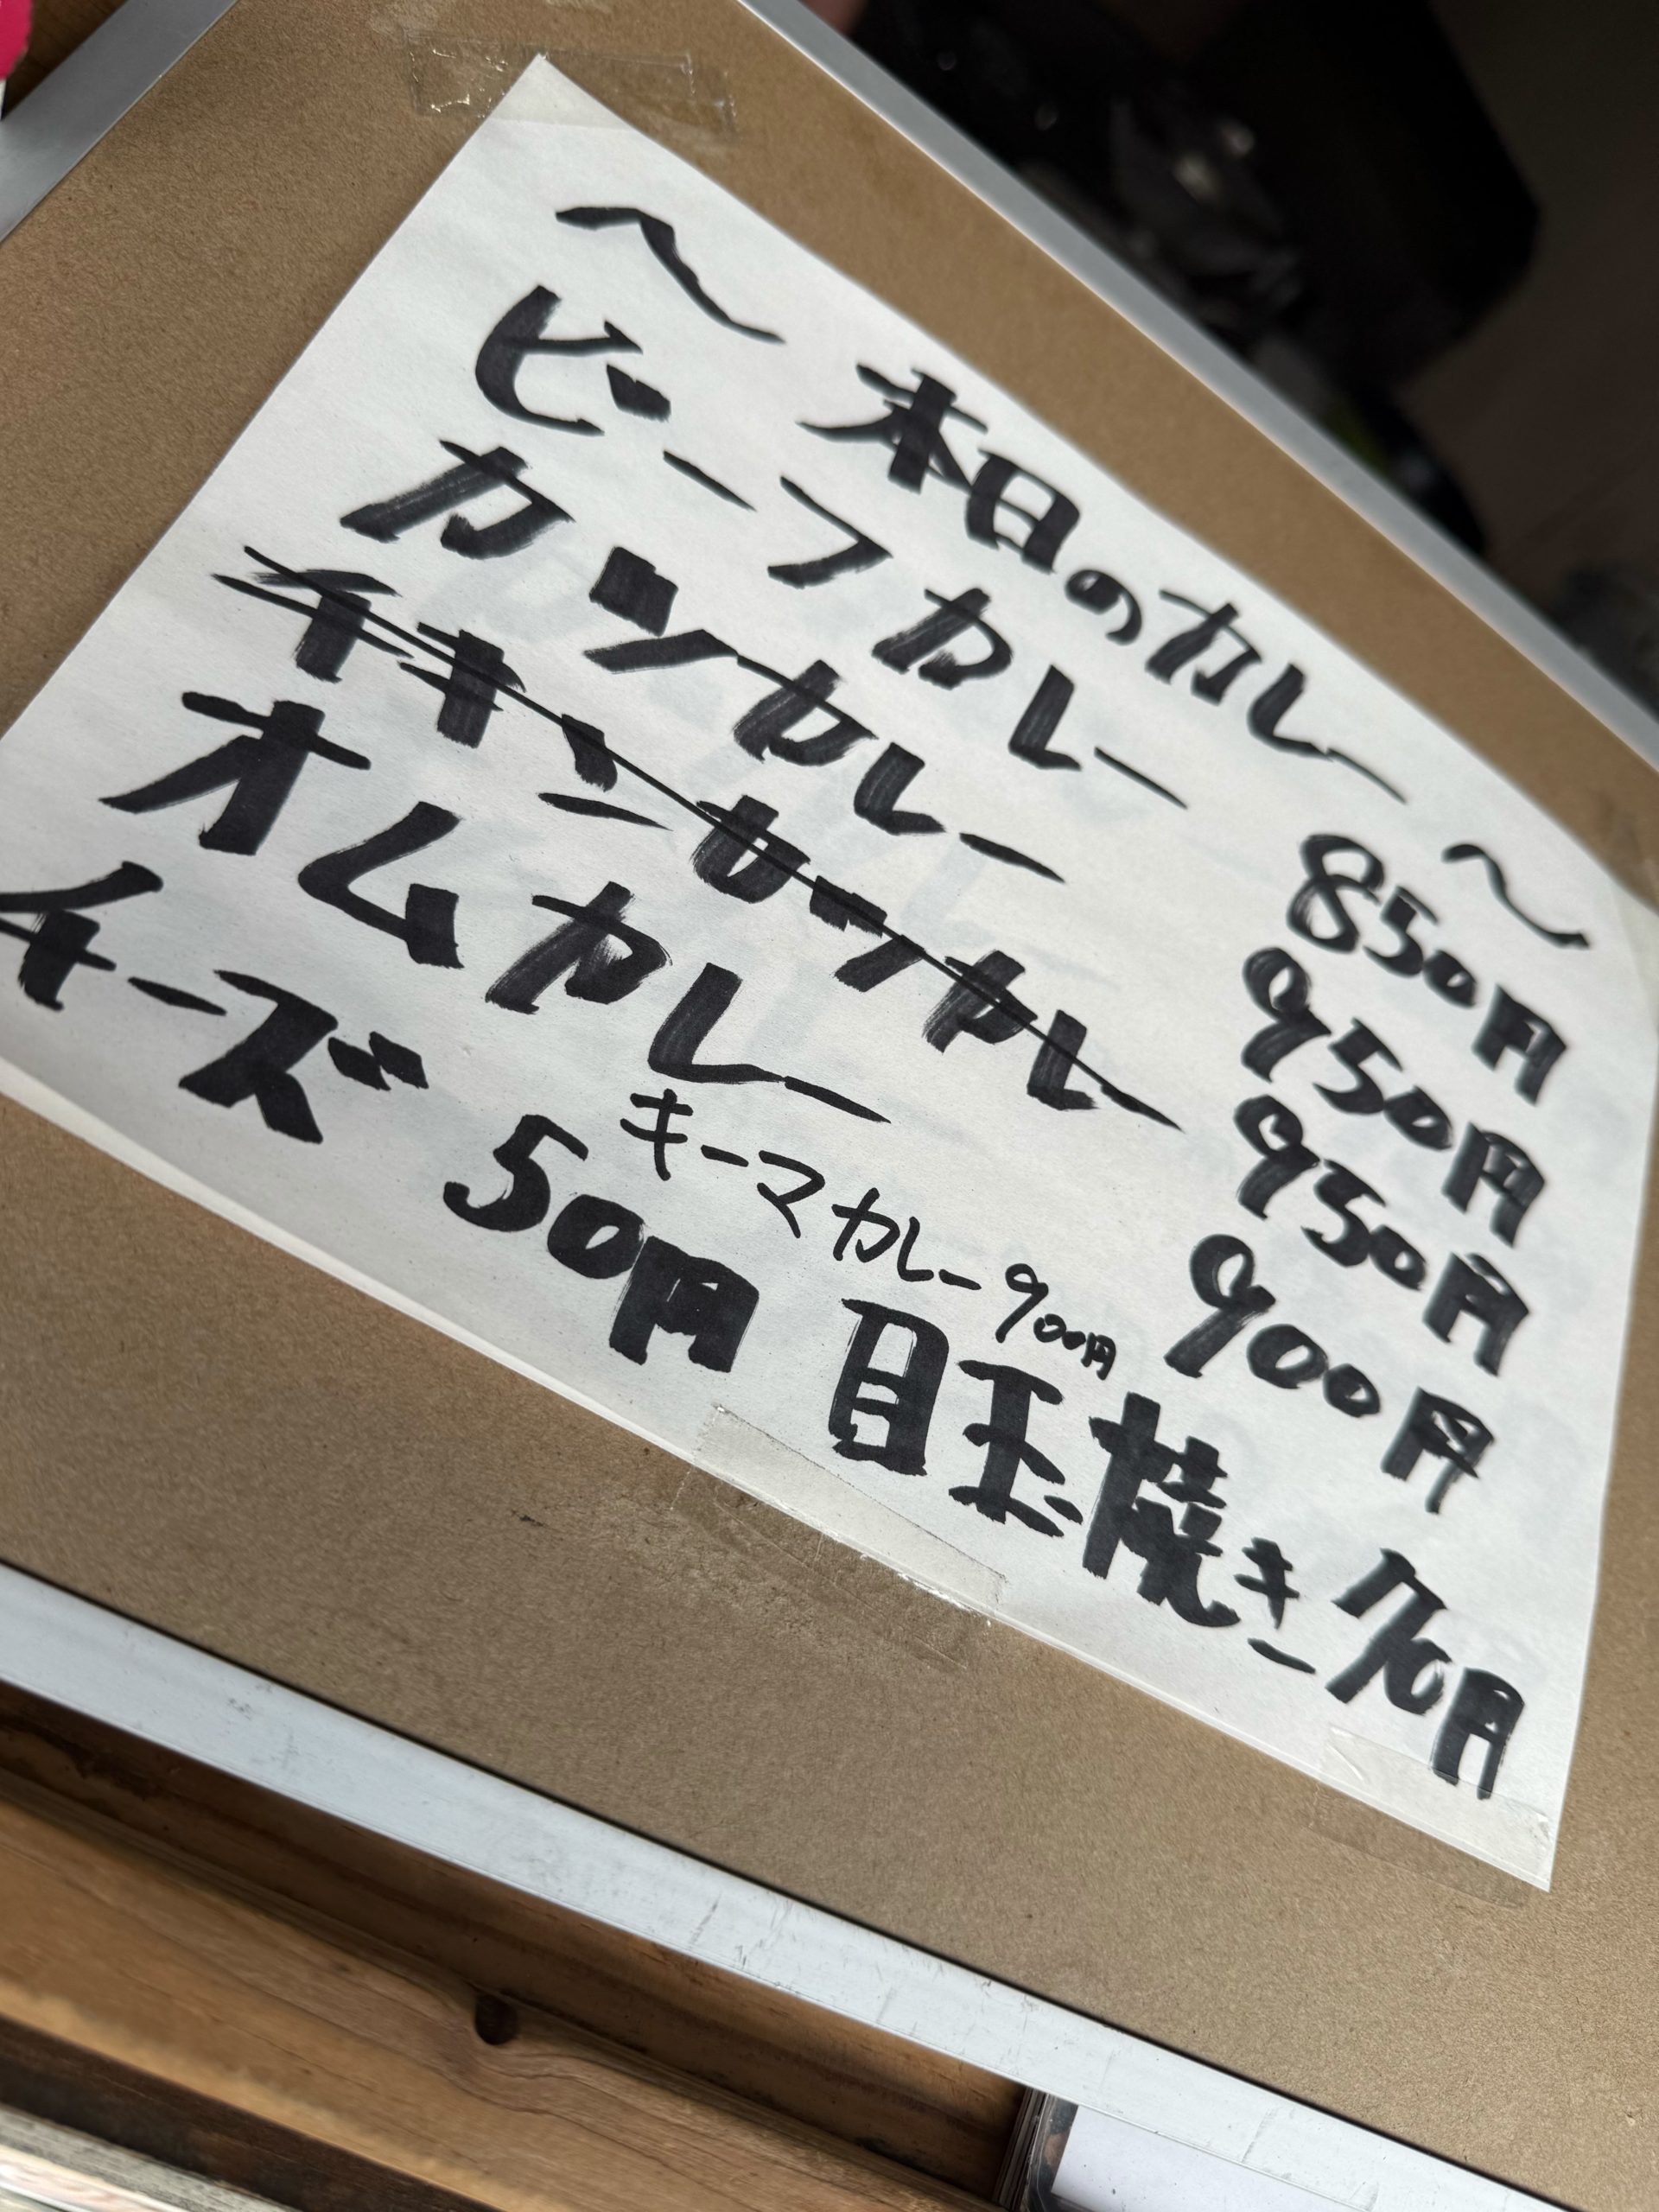 〜 本日のカレー 〜
ビーフカレー 850円
カツカレー 950円
チキンカツカレー 950円
オムカレー 900円
キーマカレー 900円
チーズ 50円 目玉焼き 70円